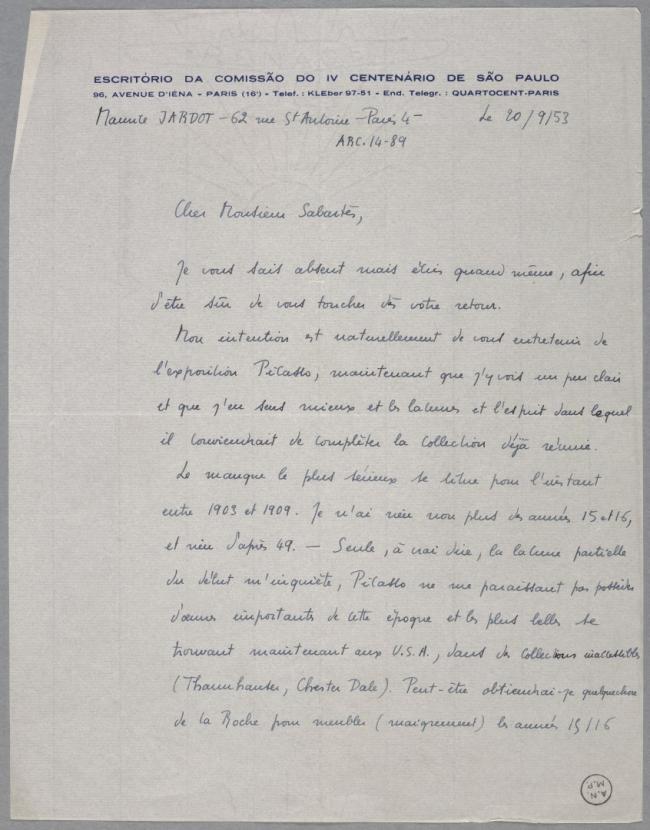 ESCRITÓRIO DA COMISSÃO DO IV CENTENÁRIO DE SÃO PAULO
96, AVENUE D'IÉNA - PARIS (16e) - Telef. : KLEber 97-51 - End. Telegr. : QUARTOCENT-PARIS
Maurice JARDOT - 62 rue St Antoine - Paris 4 - Le 20/9/53
ARC. 14-89
Cher Monsieur Sabartés,
Je vous sais absent mais écris quand même, afin
d'être sûr de vous toucher dès votre retour.
Mon intention est naturellement de vous entretenir de
l'exposition Picasso, maintenant que j'y vois un peu clair
et que j'en sens mieux et les lacunes et l'esprit dans lequel
il conviendrait de compléter la collection déjà réunie.
Le manque le plus sérieux se situe pour l'instant
entre 1903 et 1909. Je n'ai rien non plus des années 15 et 16,
et rien d'après 49. — Seule, à vrai dire, la lacune partielle
du début m'inquiète, Picasso ne me paraissant pas posséder
d'œuvres importantes de cette époque et les plus belles se
trouvant maintenant aux U.S.A., dans des collections inaccessibles
(Thannhauser, Chester Dale). Peut-être obtiendrai-je quelque chose
de La Roche pour meubler (maigrement) les années 15/16
A.N.
M.P.